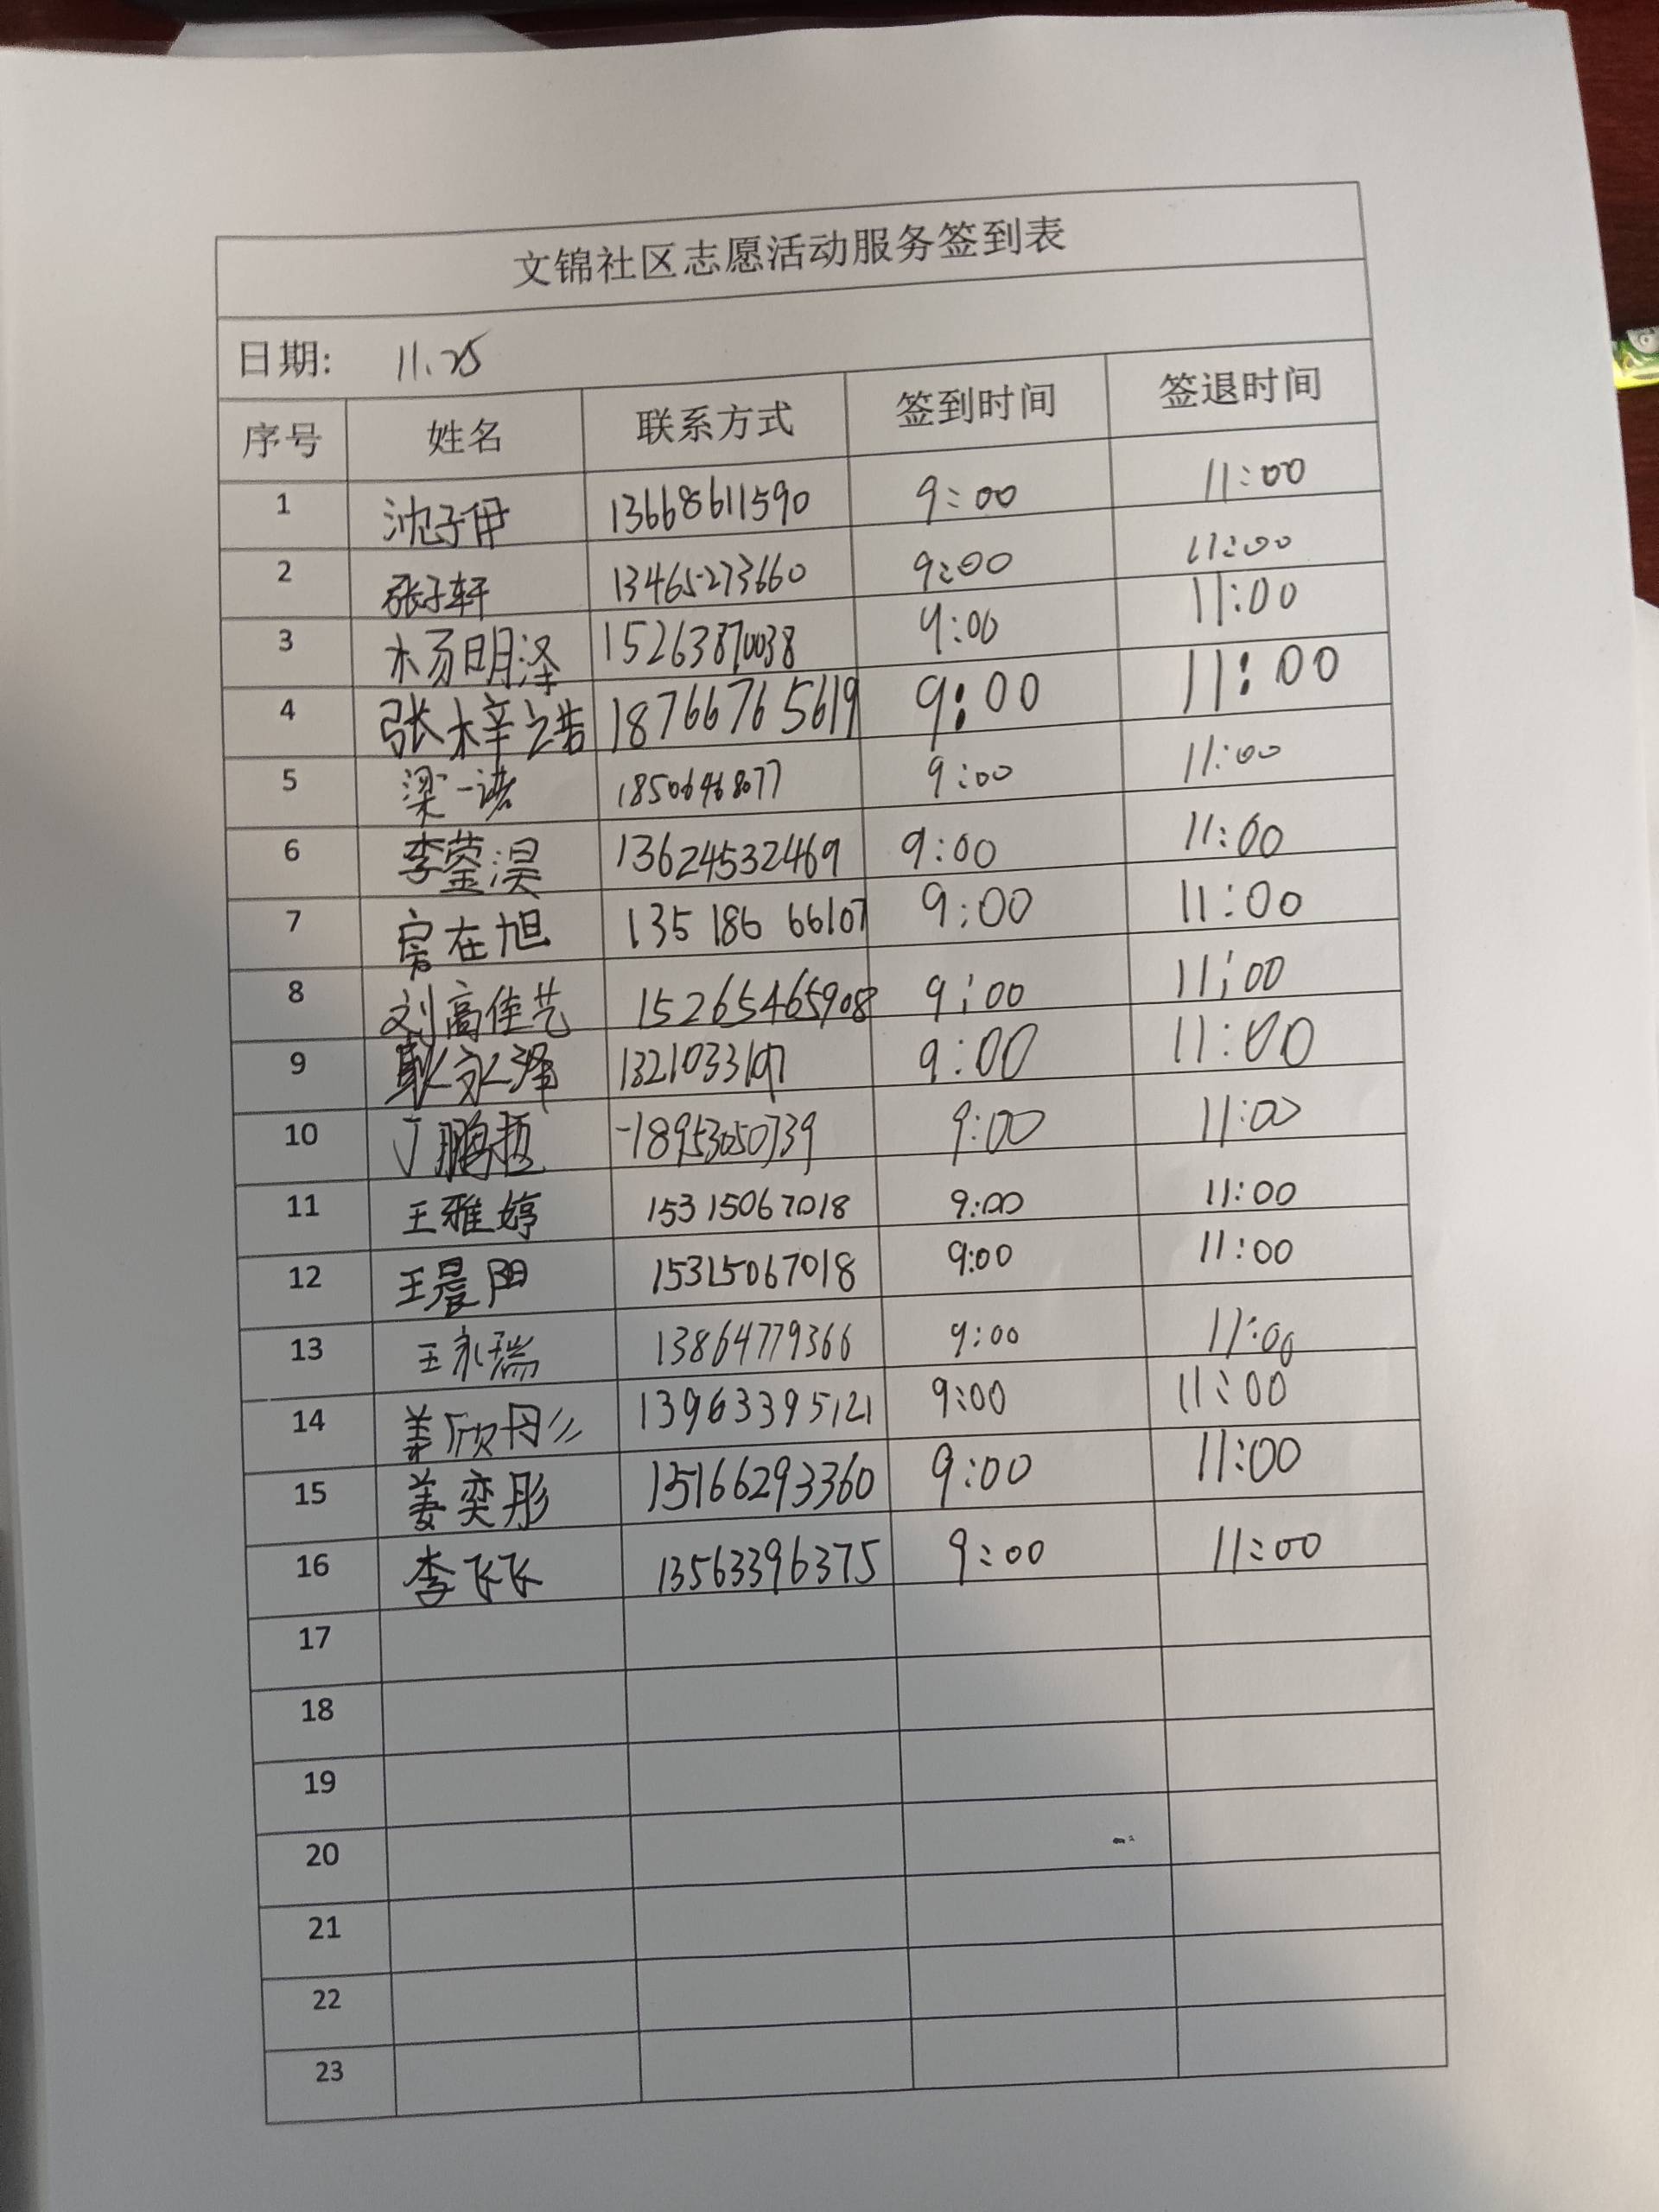 文锦社区志愿活动服务签到表
日期: 11.25
序号 姓名 联系方式 签到时间 签退时间
1 沈子伊 13668611590 9:00 11:00
2 张子轩 13465273660 9:00 11:00
3 杨明泽 15263870038 9:00 11:00
4 张梓浩 18766765619 9:00 11:00
5 梁一诺 18506468077 9:00 11:00
6 李蓥淏 13624532469 9:00 11:00
7 房在旭 13518666107 9:00 11:00
8 刘高佳艺 15265465908 9:00 11:00
9 耿永泽 9:00 11:00
10 丁鹏哲 18953050739 9:00 11:00
11 王雅婷 15315067018 9:00 11:00
12 王晨阳 15315067018 9:00 11:00
13 王永瑞 13864779366 9:00 11:00
14 姜欣彤 13963395121 9:00 11:00
15 姜奕彤 15166293360 9:00 11:00
16 李飞飞 13563396375 9:00 11:00
17
18
19
20
21
22
23